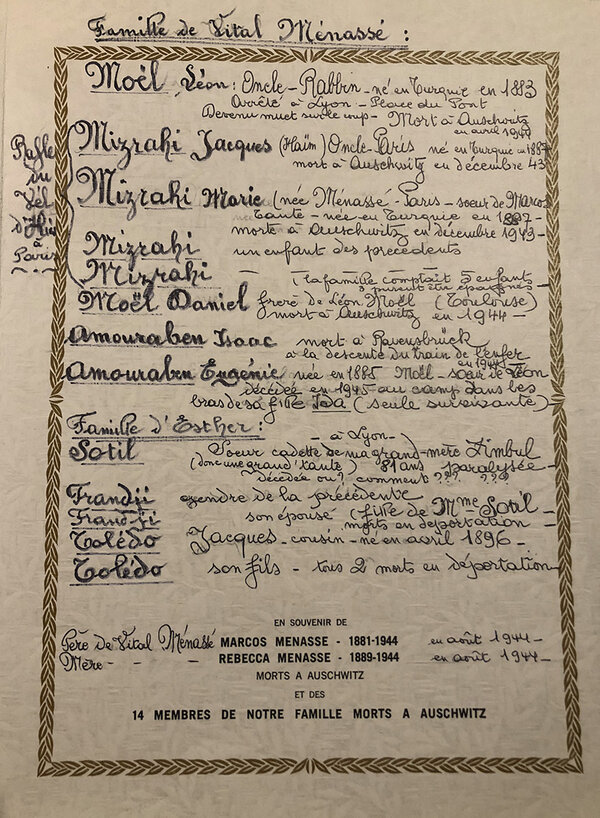 Famille de Vital Ménassé :
Moël Léon : Oncle - Rabbin - né en Turquie en 1883
Arrêté à Lyon - Place du Pont
Devenu muet sur le coup - Mort à Auschwitz
en avril 1944
Rafle du Vél d'Hiv à Paris
Mizrahi Jacques (Haïm) Oncle - Paris né en Turquie en 1887
mort à Auschwitz en décembre 43
Mizrahi Marie (née Ménassé - Paris - soeur de Marcos
tante - née en Turquie en 1887 -
morte à Auschwitz en décembre 1943 -
Mizrahi un enfant des précédents
Mizrahi - - -
(la famille comptait 5 enfants
Moël Daniel frère de Léon Moël (Toulouse)
mort à Auschwitz en 1944 -
Amouraben Isaac mort à Ravensbrück
à la descente du train de l'enfer
en 1944
Amouraben Eugénie née en 1885 Moël - soeur de Léon
décédée en 1945 au camp dans les
bras de sa fille Ida (seule survivante)
Famille d'Esther :
- à Lyon -
Sotil Soeur cadette de ma grand-mère Zimbul
(donc une grand'tante) 81 ans paralysée -
décédée où ? comment ??? ???
Frandji gendre de la précédente
Frandji son épouse (fille de Mme Sotil -
morts en déportation -
Tolédo Jacques - cousin - né en avril 1896 -
Tolédo son fils - tous 2 morts en déportation
EN SOUVENIR DE
Père de Vital Ménassé MARCOS MENASSE - 1881-1944 en août 1944 -
Mère - - REBECCA MENASSE - 1889-1944 en août 1944 -
MORTS A AUSCHWITZ
ET DES
14 MEMBRES DE NOTRE FAMILLE MORTS A AUSCHWITZ